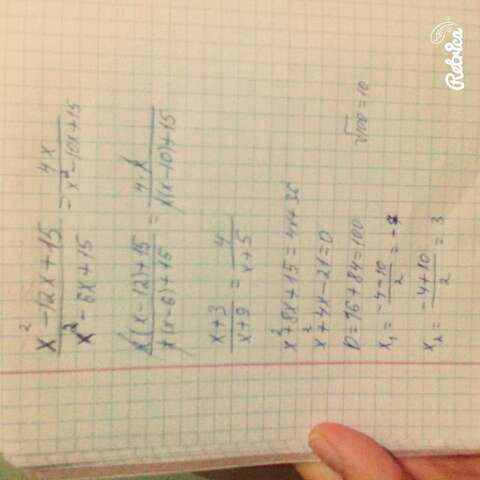 x² - 12x + 15 / x² - 6x + 15 = 4x / x² - 10x + 15
x(x - 12) + 15 / x(x - 6) + 15 = 4 · x / x(x - 10) + 15
x + 3 / x + 9 = 4 / x + 5
x² + 8x + 15 = 4x + 36
x² + 4x - 21 = 0
D = 16 + 84 = 100 √100 = 10
x₁ = -4 - 10 / 2 = -7
x₂ = -4 + 10 / 2 = 3
Retrica